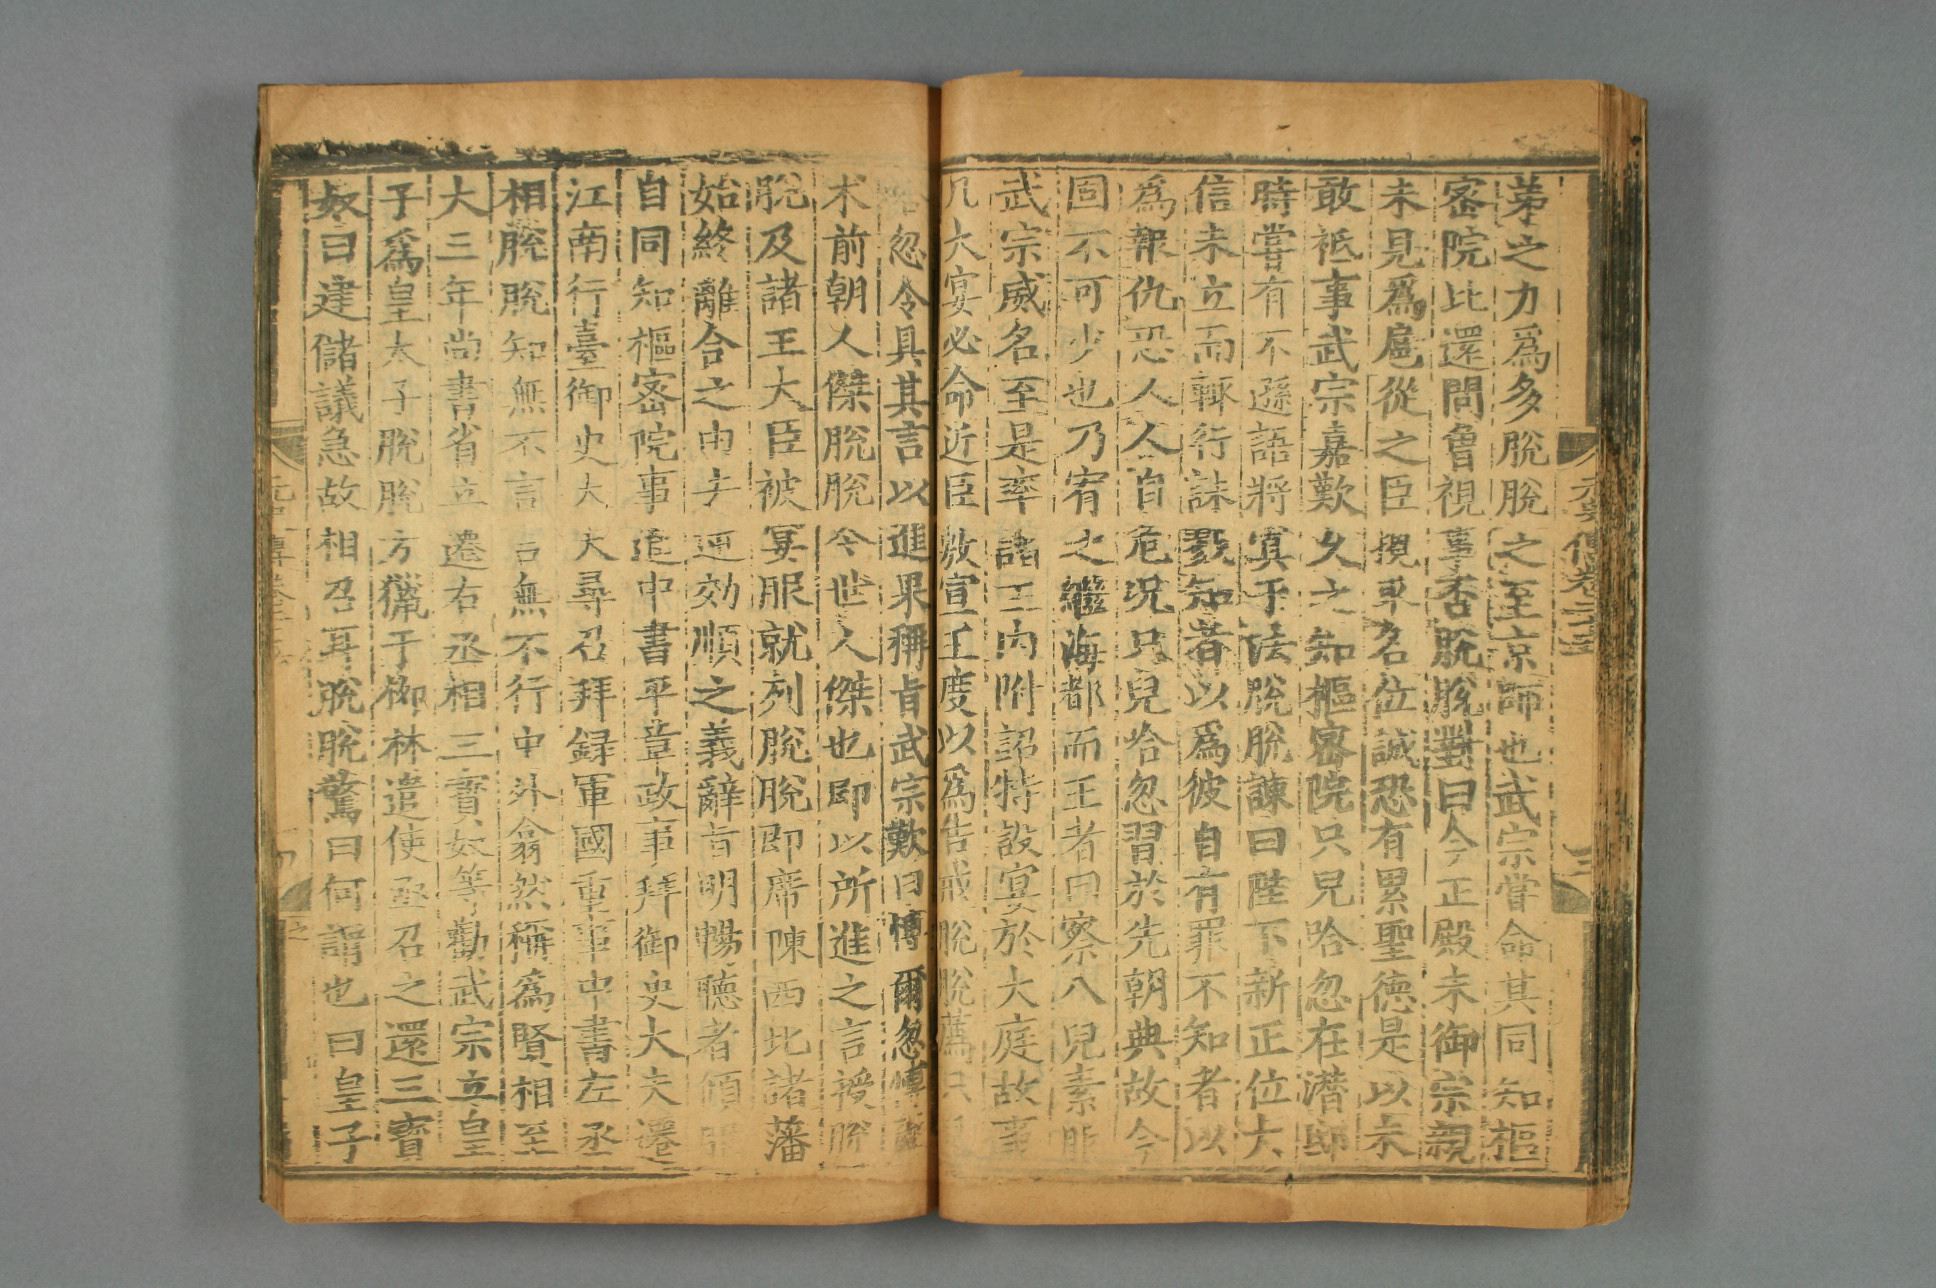 弟之力爲多脫脫之至京師也武宗嘗命其同知樞
密院比還問曾視事否脫脫對曰今正殿未御宗親
未見爲扈從之臣攬取名位誠恐有累聖德是以未
敢祗事武宗嘉歎久之知樞密院只兒哈忽在潛邸
時嘗有不遜語將寘于法脫脫諫曰陛下新正位大
信未立而輒行誅戮知者以爲彼自有罪不知者以
爲報仇恐人人自危況只兒哈忽習於先朝典故今
固不可少也乃宥之繼海都而王者曰察八兒素服
武宗威名至是率諸王內附詔特設宴於大庭故事
凡大宴必命近臣敷宣王度以爲告戒脫脫薦只兒
哈忽令具其言以進果稱旨武宗歎曰博爾忽博爾
术前朝人傑脫脫今世人傑也即以所進之言授脫
脫及諸王大臣被宴服就列脫脫即席陳西北諸藩
始終離合之由去逆効順之義辭旨明暢聽者傾服
自同知樞密院事進中書平章政事拜御史大夫遷
江南行臺御史大夫尋召拜録軍國重事中書左丞
相脫脫知無不言言無不行中外翕然稱爲賢相至
大三年尚書省立遷右丞相三寶奴等勸武宗立皇
子爲皇太子脫脫方獵于柳林遣使亟召之還三寶
奴曰建儲議急故相召耳脫脫驚曰何謂也曰皇子
元史傳卷二十五